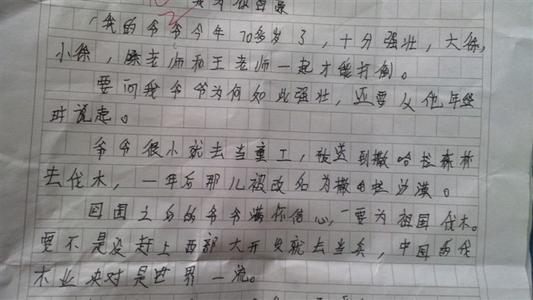 我的爷爷今年70多岁了，十分强壮，大徐，
小徐，陈老师和王老师一起才能打倒。
要问我爷爷为何如此强壮，还要从他年轻
时说起。
爷爷很小就去当童工，被送到撒哈拉森林
去伐木，一年后那儿被改名为撒哈拉沙漠。
回国之后的爷爷满怀信心，要为祖国伐木。
要不是没赶上西部大开发就去当兵，中国的伐
木业决对是世界一流。